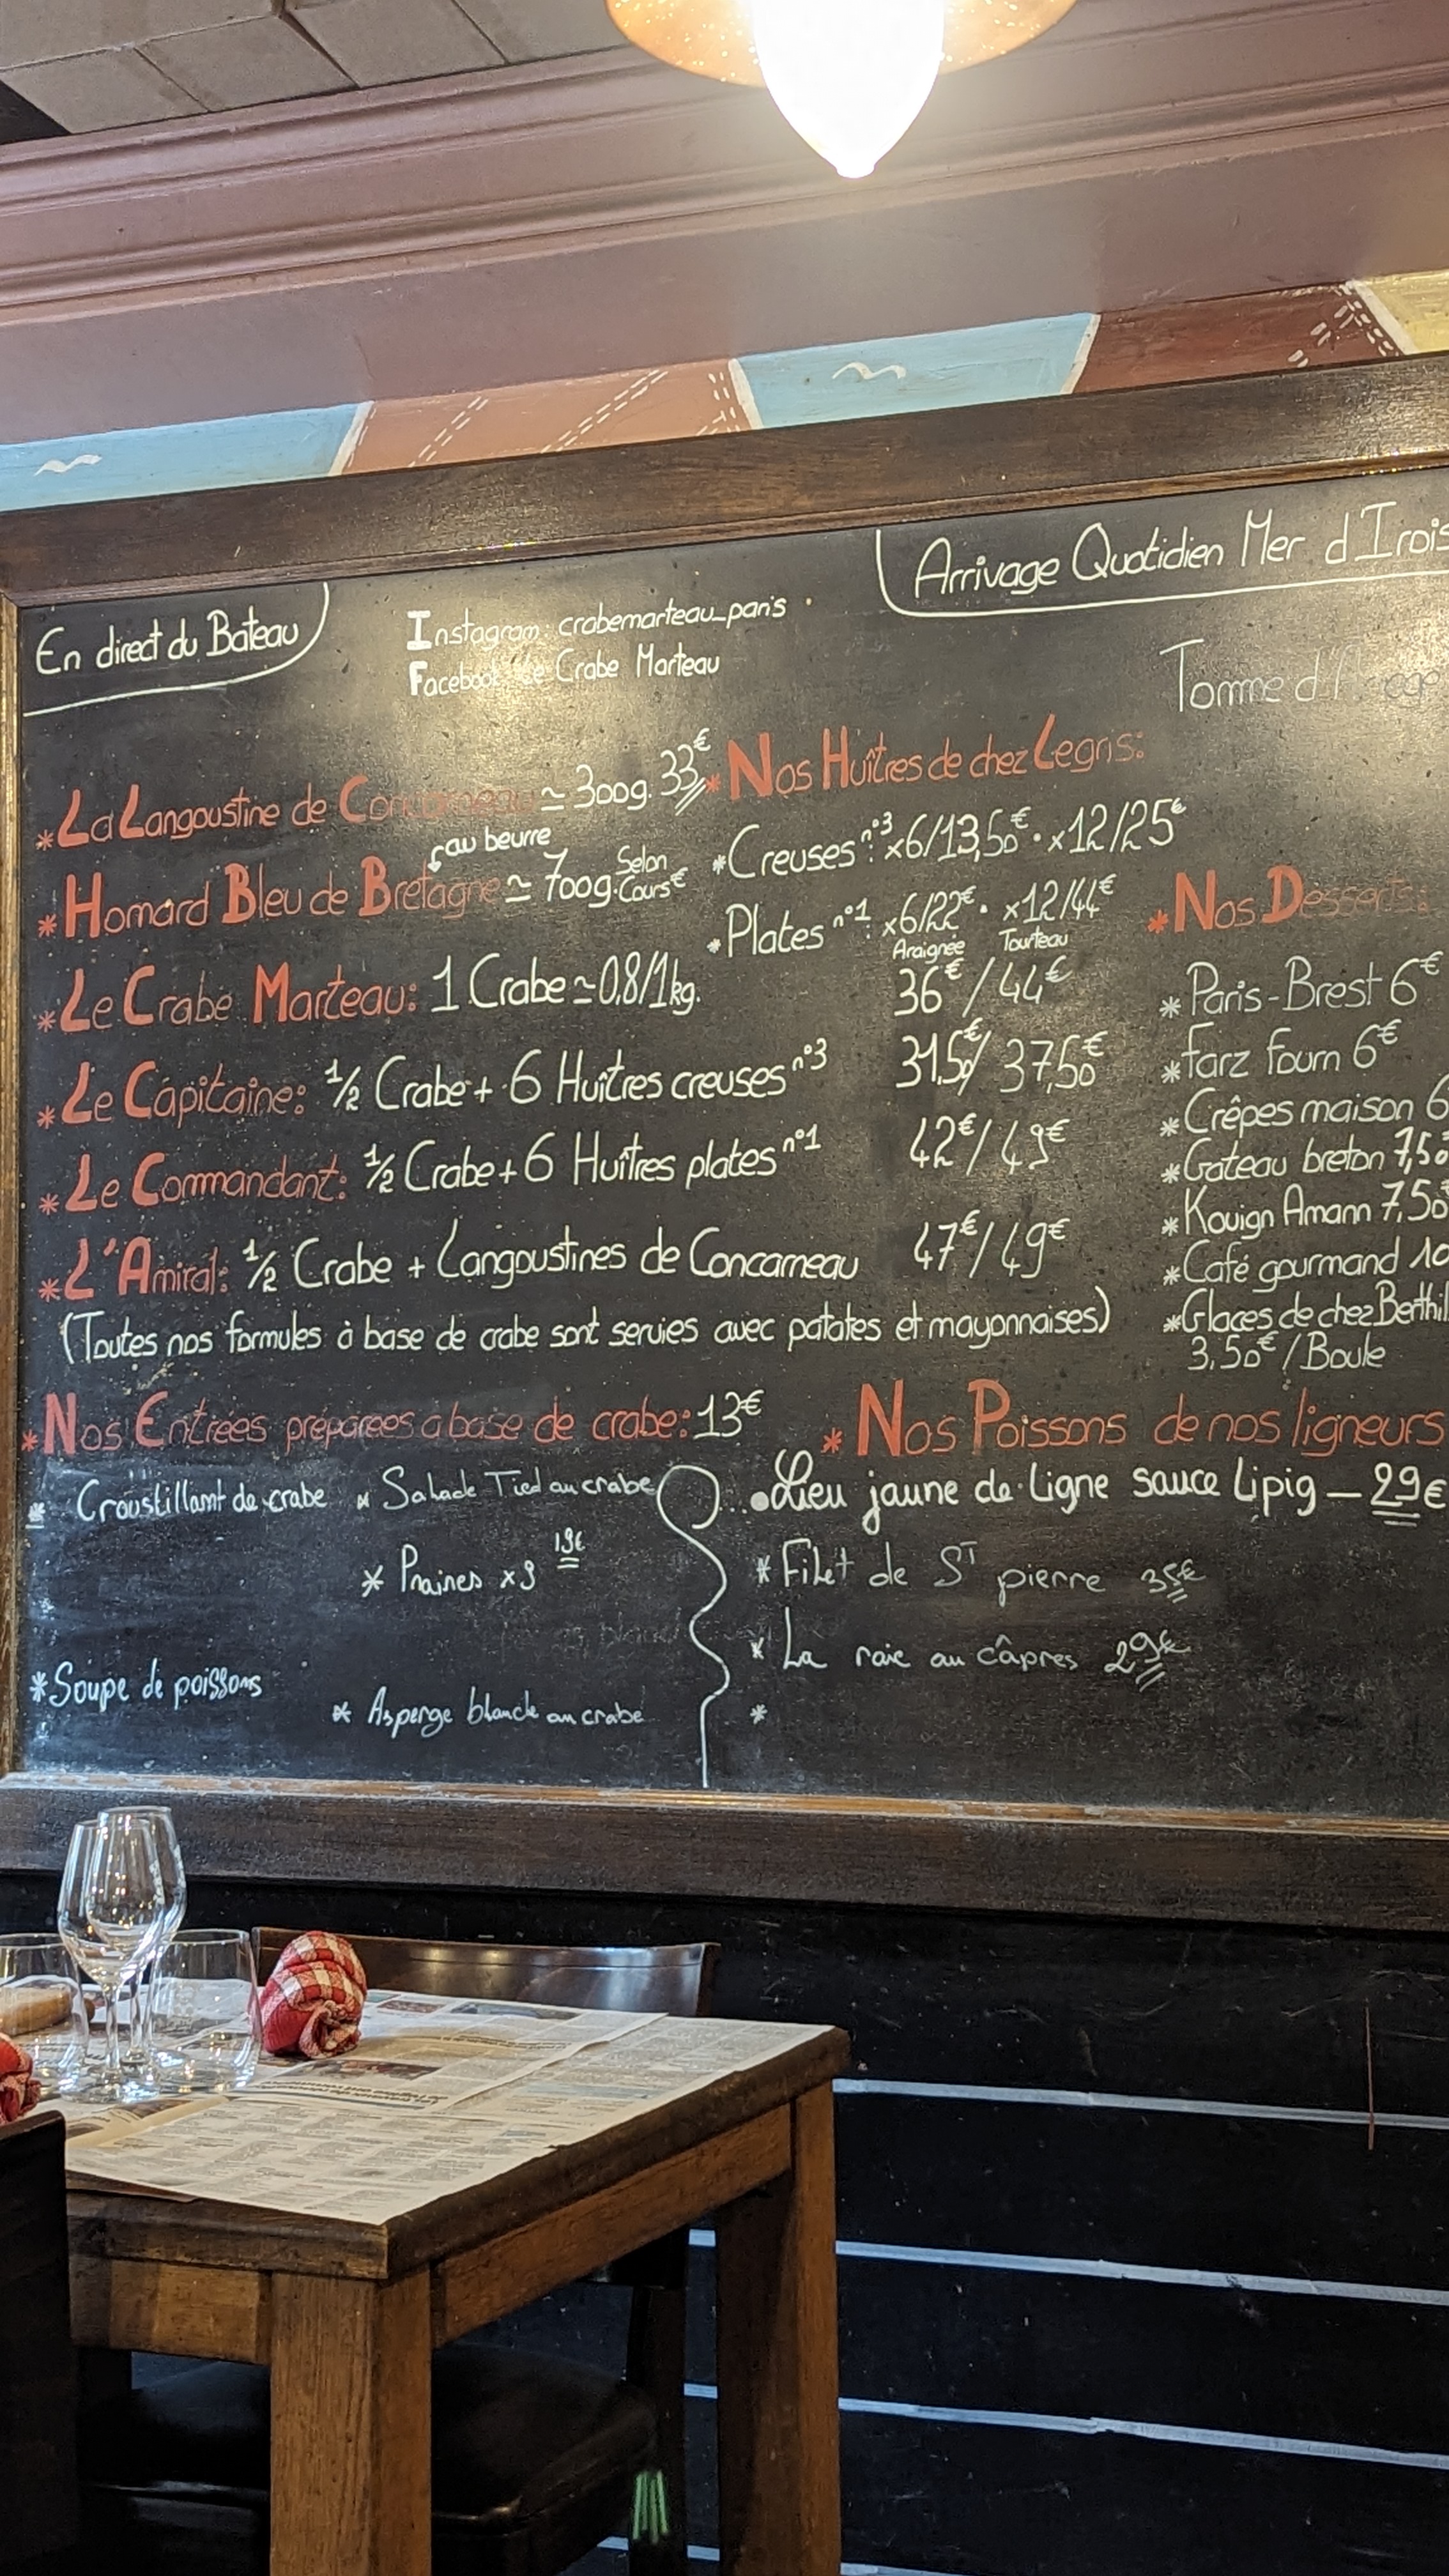 En direct du Bateau
Instagram: crabemarteau_paris
Facebook: Le Crabe Marteau
Arrivage Quotidien Mer d'Irois
Tomme
*La Langoustine de Concarneau ≃ 300g. 33€
au beurre
*Homard Bleu de Bretagne ≃ 700g. Selon Cours €
*Le Crabe Marteau: 1 Crabe ≃ 0.8/1kg.
*Nos Huîtres de chez Legris:
*Creuses n°3: x6/13,50€ · x12/25€
*Plates n°1: x6/22€ · x12/44€
Araignée Tourteau
36€ / 44€
*Le Capitaine: 1/2 Crabe + 6 Huîtres creuses n°3 31,50€/ 37,50€
*Le Commandant: 1/2 Crabe + 6 Huîtres plates n°1 42€/ 49€
*L'Amiral: 1/2 Crabe + Langoustines de Concarneau 47€/ 49€
(Toutes nos formules à base de crabe sont servies avec patates et mayonnaises)
*Nos Desserts:
*Paris-Brest 6€
*Farz Fourn 6€
*Crêpes maison 6
*Gateau breton 7,50
*Kouign Amann 7,50
*Café gourmand 10
*Glaces de chez Berthil
3,50€ / Boule
*Nos Entrées préparées a base de crabe: 13€
* Croustillant de crabe * Salade Tied au crabe
* Praires x9 19€
*Soupe de poissons
* Asperge blanche au crabe
* Nos Poissons de nos ligneurs
Lieu jaune de ligne sauce Lipig — 29€
* Filet de ST pierre 35€
* La raie au câpres 29€
*